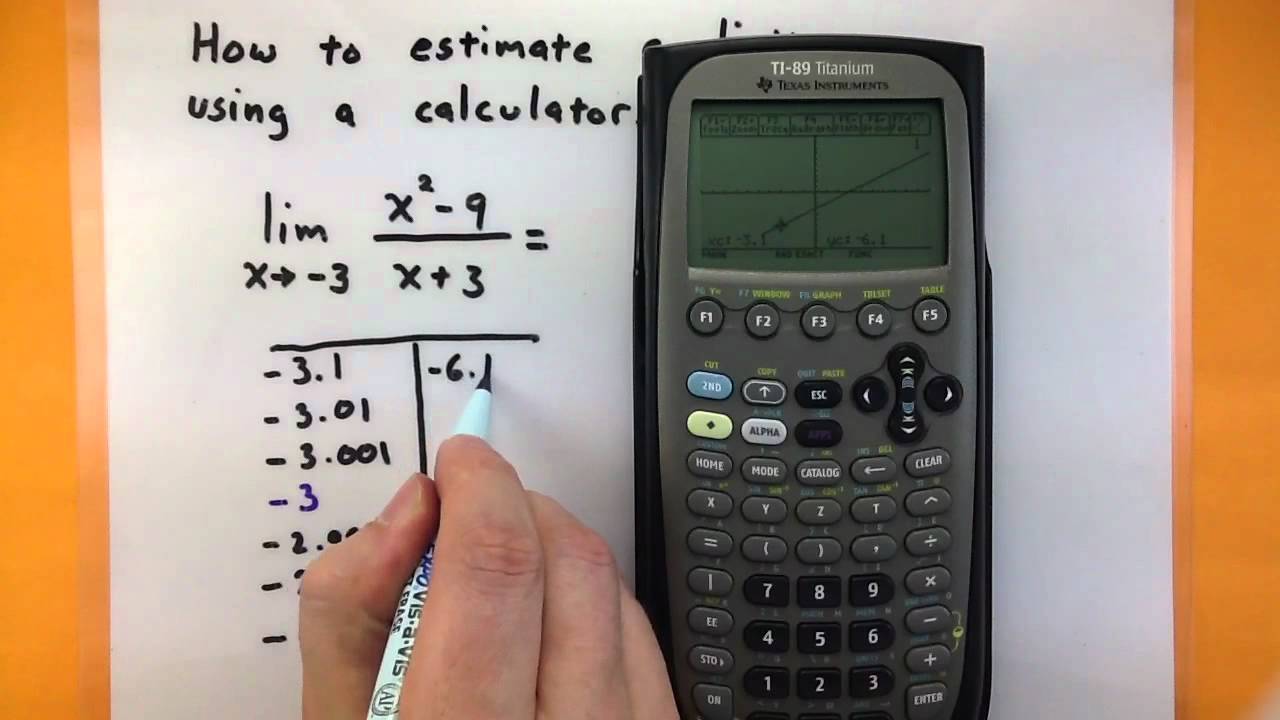 How to estimate
using a calculator
lim x→-3 x²-9 / x+3 =
-3.1 -6.1
-3.01
-3.001
-3
TI-89 Titanium
TEXAS INSTRUMENTS
xc: -3.1 yc: -6.1
MAIN RAD EXACT FUNC
F6 Y= F7 WINDOW F8 GRAPH TBLSET TABLE
F1 F2 F3 F4 F5
CUT COPY QUIT PASTE
2ND ↑ ESC
ALPHA APPS
INS DEL
HOME MODE CATALOG ← CLEAR
X Y Z T ^
= ( ) , ÷
| 7 8 9 ×
EE 4 5 6 −
STO▸ 1 2 3 +
ON ENTER
vis-à-vis